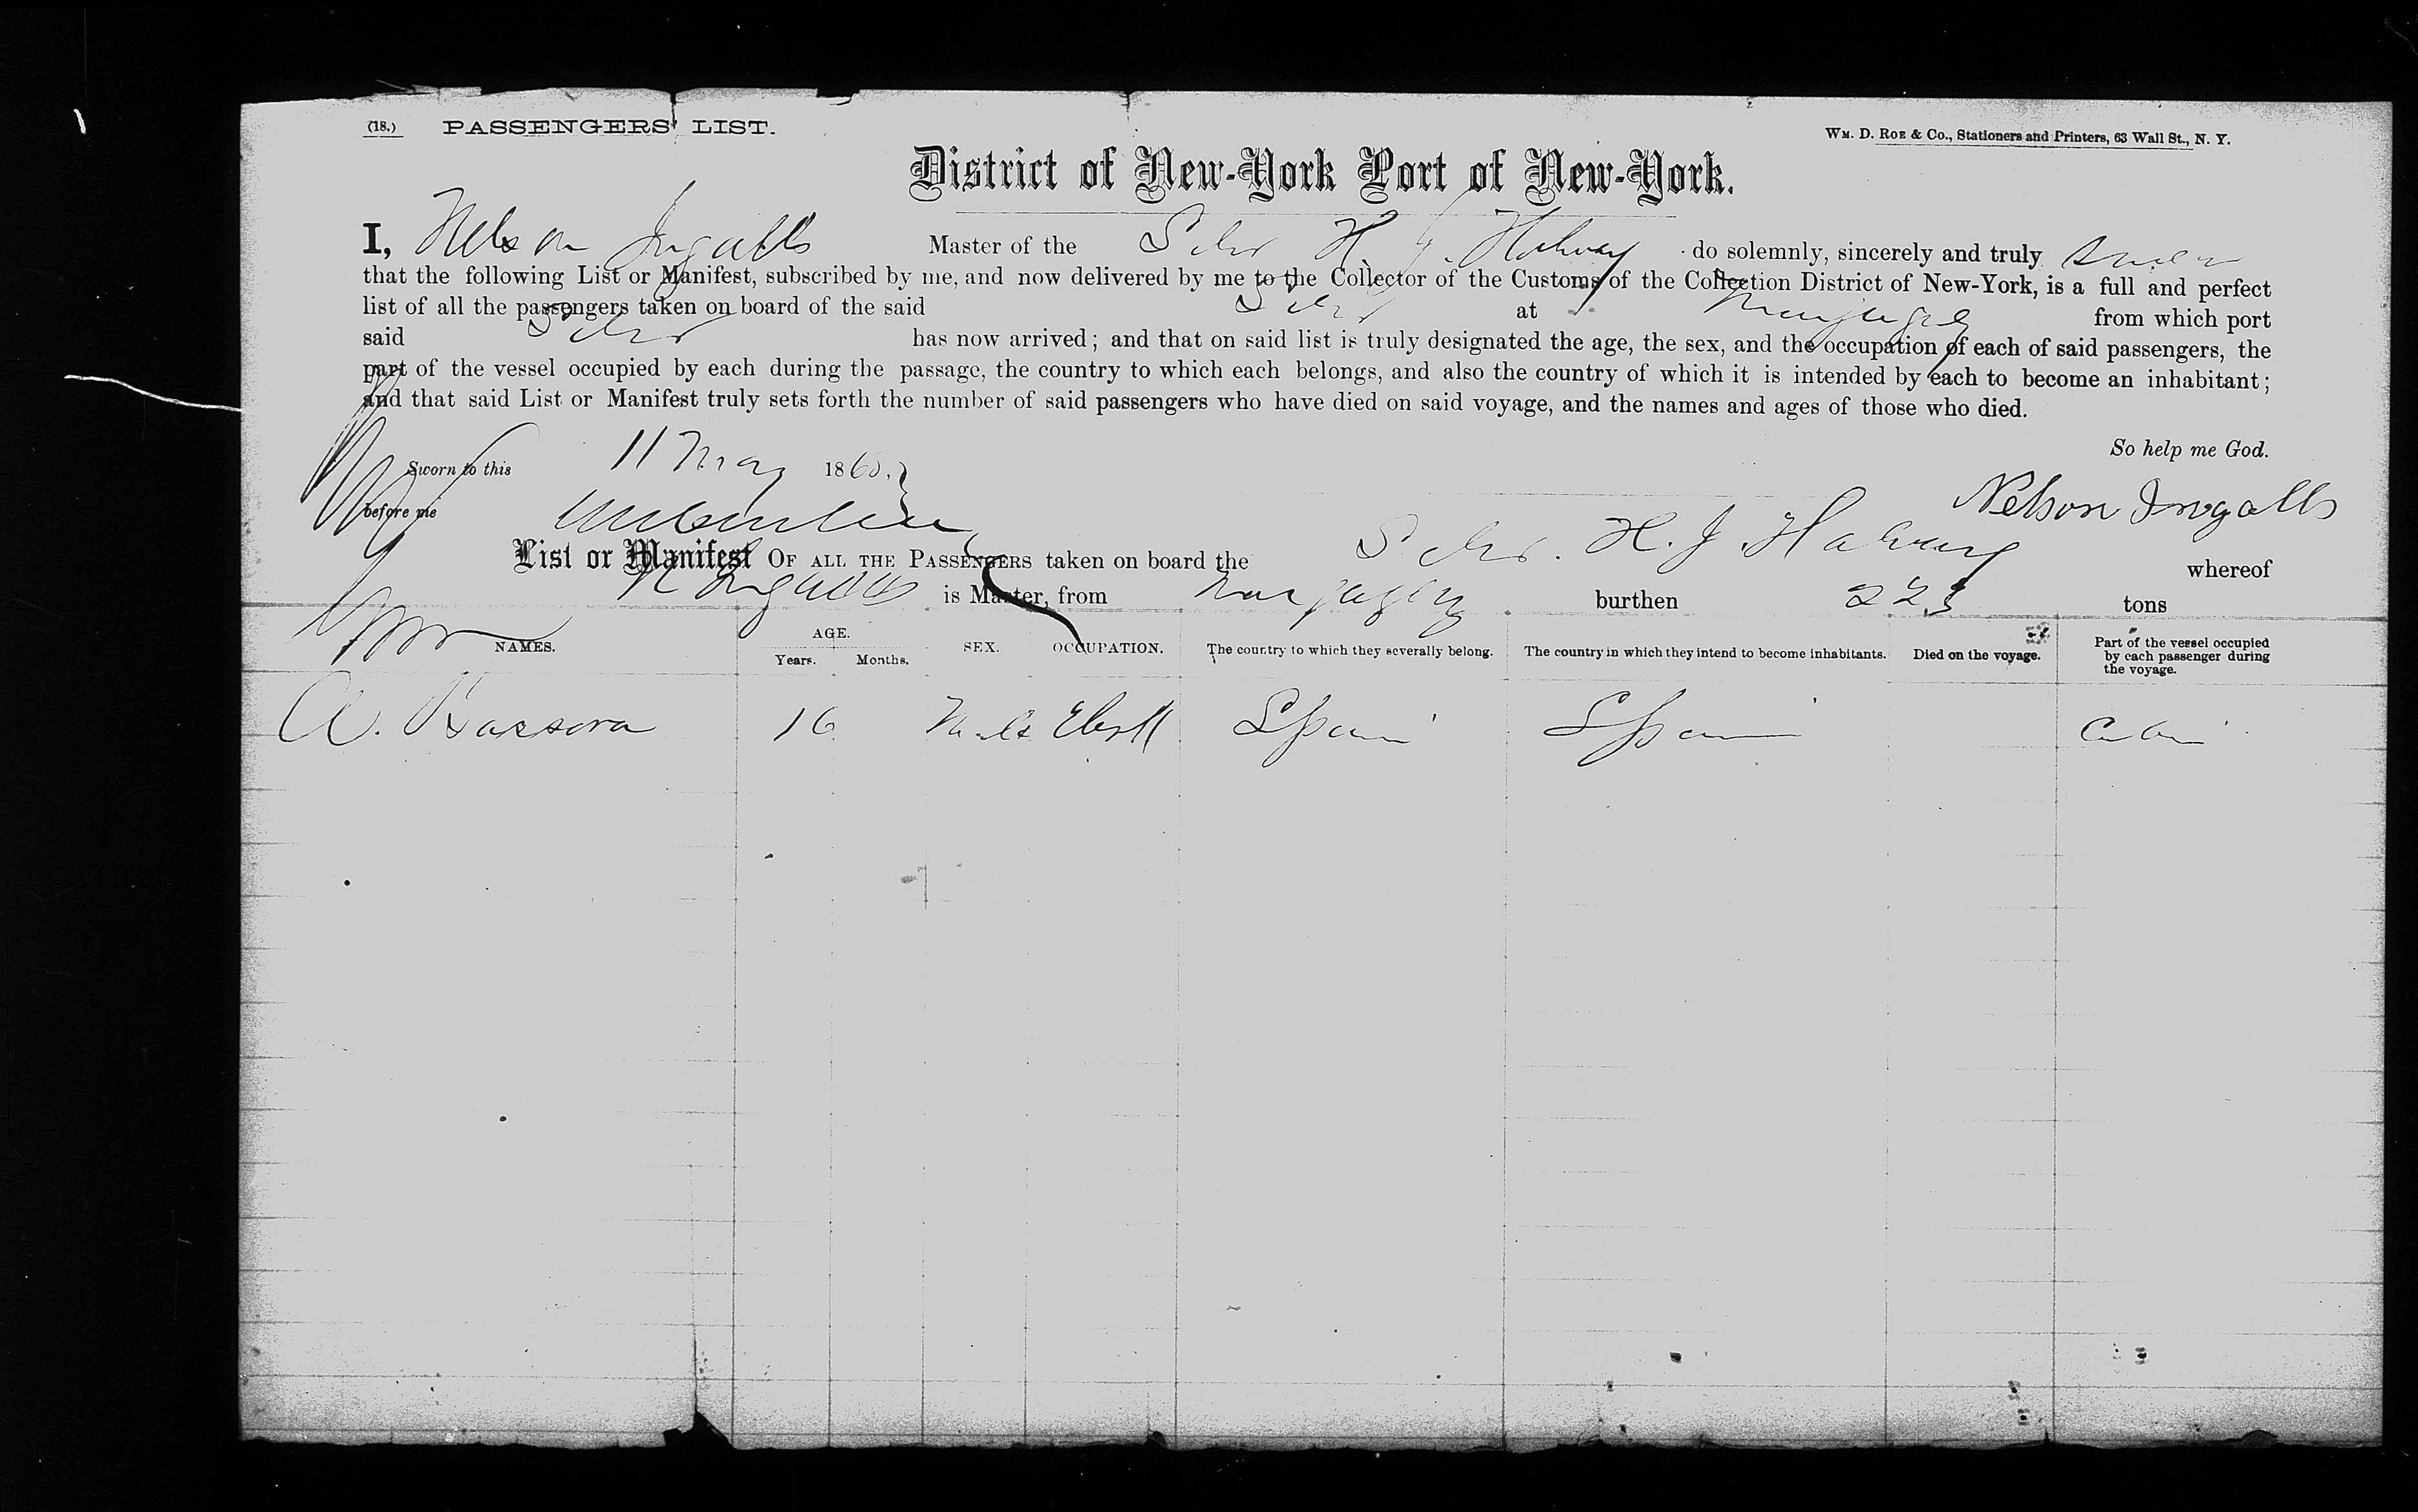 (18.) PASSENGERS' LIST.
WM. D. ROE & Co., Stationers and Printers, 63 Wall St., N. Y.
District of New-York Port of New-York.
I, Nelson Ingalls Master of the Schr H. J. do solemnly, sincerely and truly swear
that the following List or Manifest, subscribed by me, and now delivered by me to the Collector of the Customs of the Collection District of New-York, is a full and perfect
list of all the passengers taken on board of the said Schr at from which port
said Schr has now arrived; and that on said list is truly designated the age, the sex, and the occupation of each of said passengers, the
part of the vessel occupied by each during the passage, the country to which each belongs, and also the country of which it is intended by each to become an inhabitant;
and that said List or Manifest truly sets forth the number of said passengers who have died on said voyage, and the names and ages of those who died.
So help me God.
Sworn to this 11 May 186
Nelson Ingalls
before me
List or Manifest OF ALL THE PASSENGERS taken on board the Schr. H. J. whereof
N Ingalls is Master, from burthen 223 tons
NAMES. AGE. Years. Months. SEX. OCCUPATION. The country to which they severally belong. The country in which they intend to become inhabitants. Died on the voyage. Part of the vessel occupied by each passenger during the voyage.
A. 16 Male Spain Spain Cabin